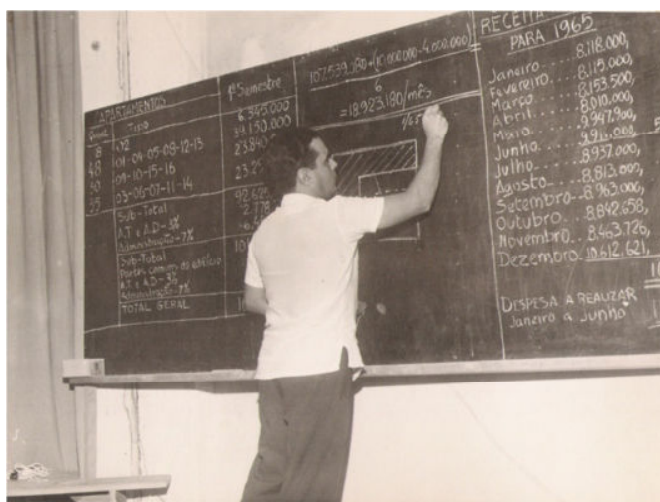 APARTAMENTOS
Quant. Tipo 1º Semestre
8 02 6.345.000
48 01-04-05-08-12-13 39.150.000
30 09-10-15-16 23.840
35 03-06-07-11-14 23.29
Sub-Total 92.625
A.T e A.D-3%
Administração-7%
Sub-Total 10
Partes comum do edifício
A.T e A.D-3%
Administração-7%
TOTAL GERAL
107.539.080+(10.000.000-4.000.000)
6
=18.923.180/mês
1/65
RECEITA
PARA 1965
Janeiro.... 8.118.000,
Fevereiro... 8.115.000,
Março.... 8.153.500,
Abril.... 8.010.000,
Maio.... 9.947.900,
Junho....
Julho.... 8.937.000,
Agosto.... 8.813.000,
Setembro.. 8.963.000,
Outubro... 8.842.658,
Novembro.. 8.463.726,
Dezembro.. 10.612.621,
DESPESA A REALIZAR
Janeiro a Junho